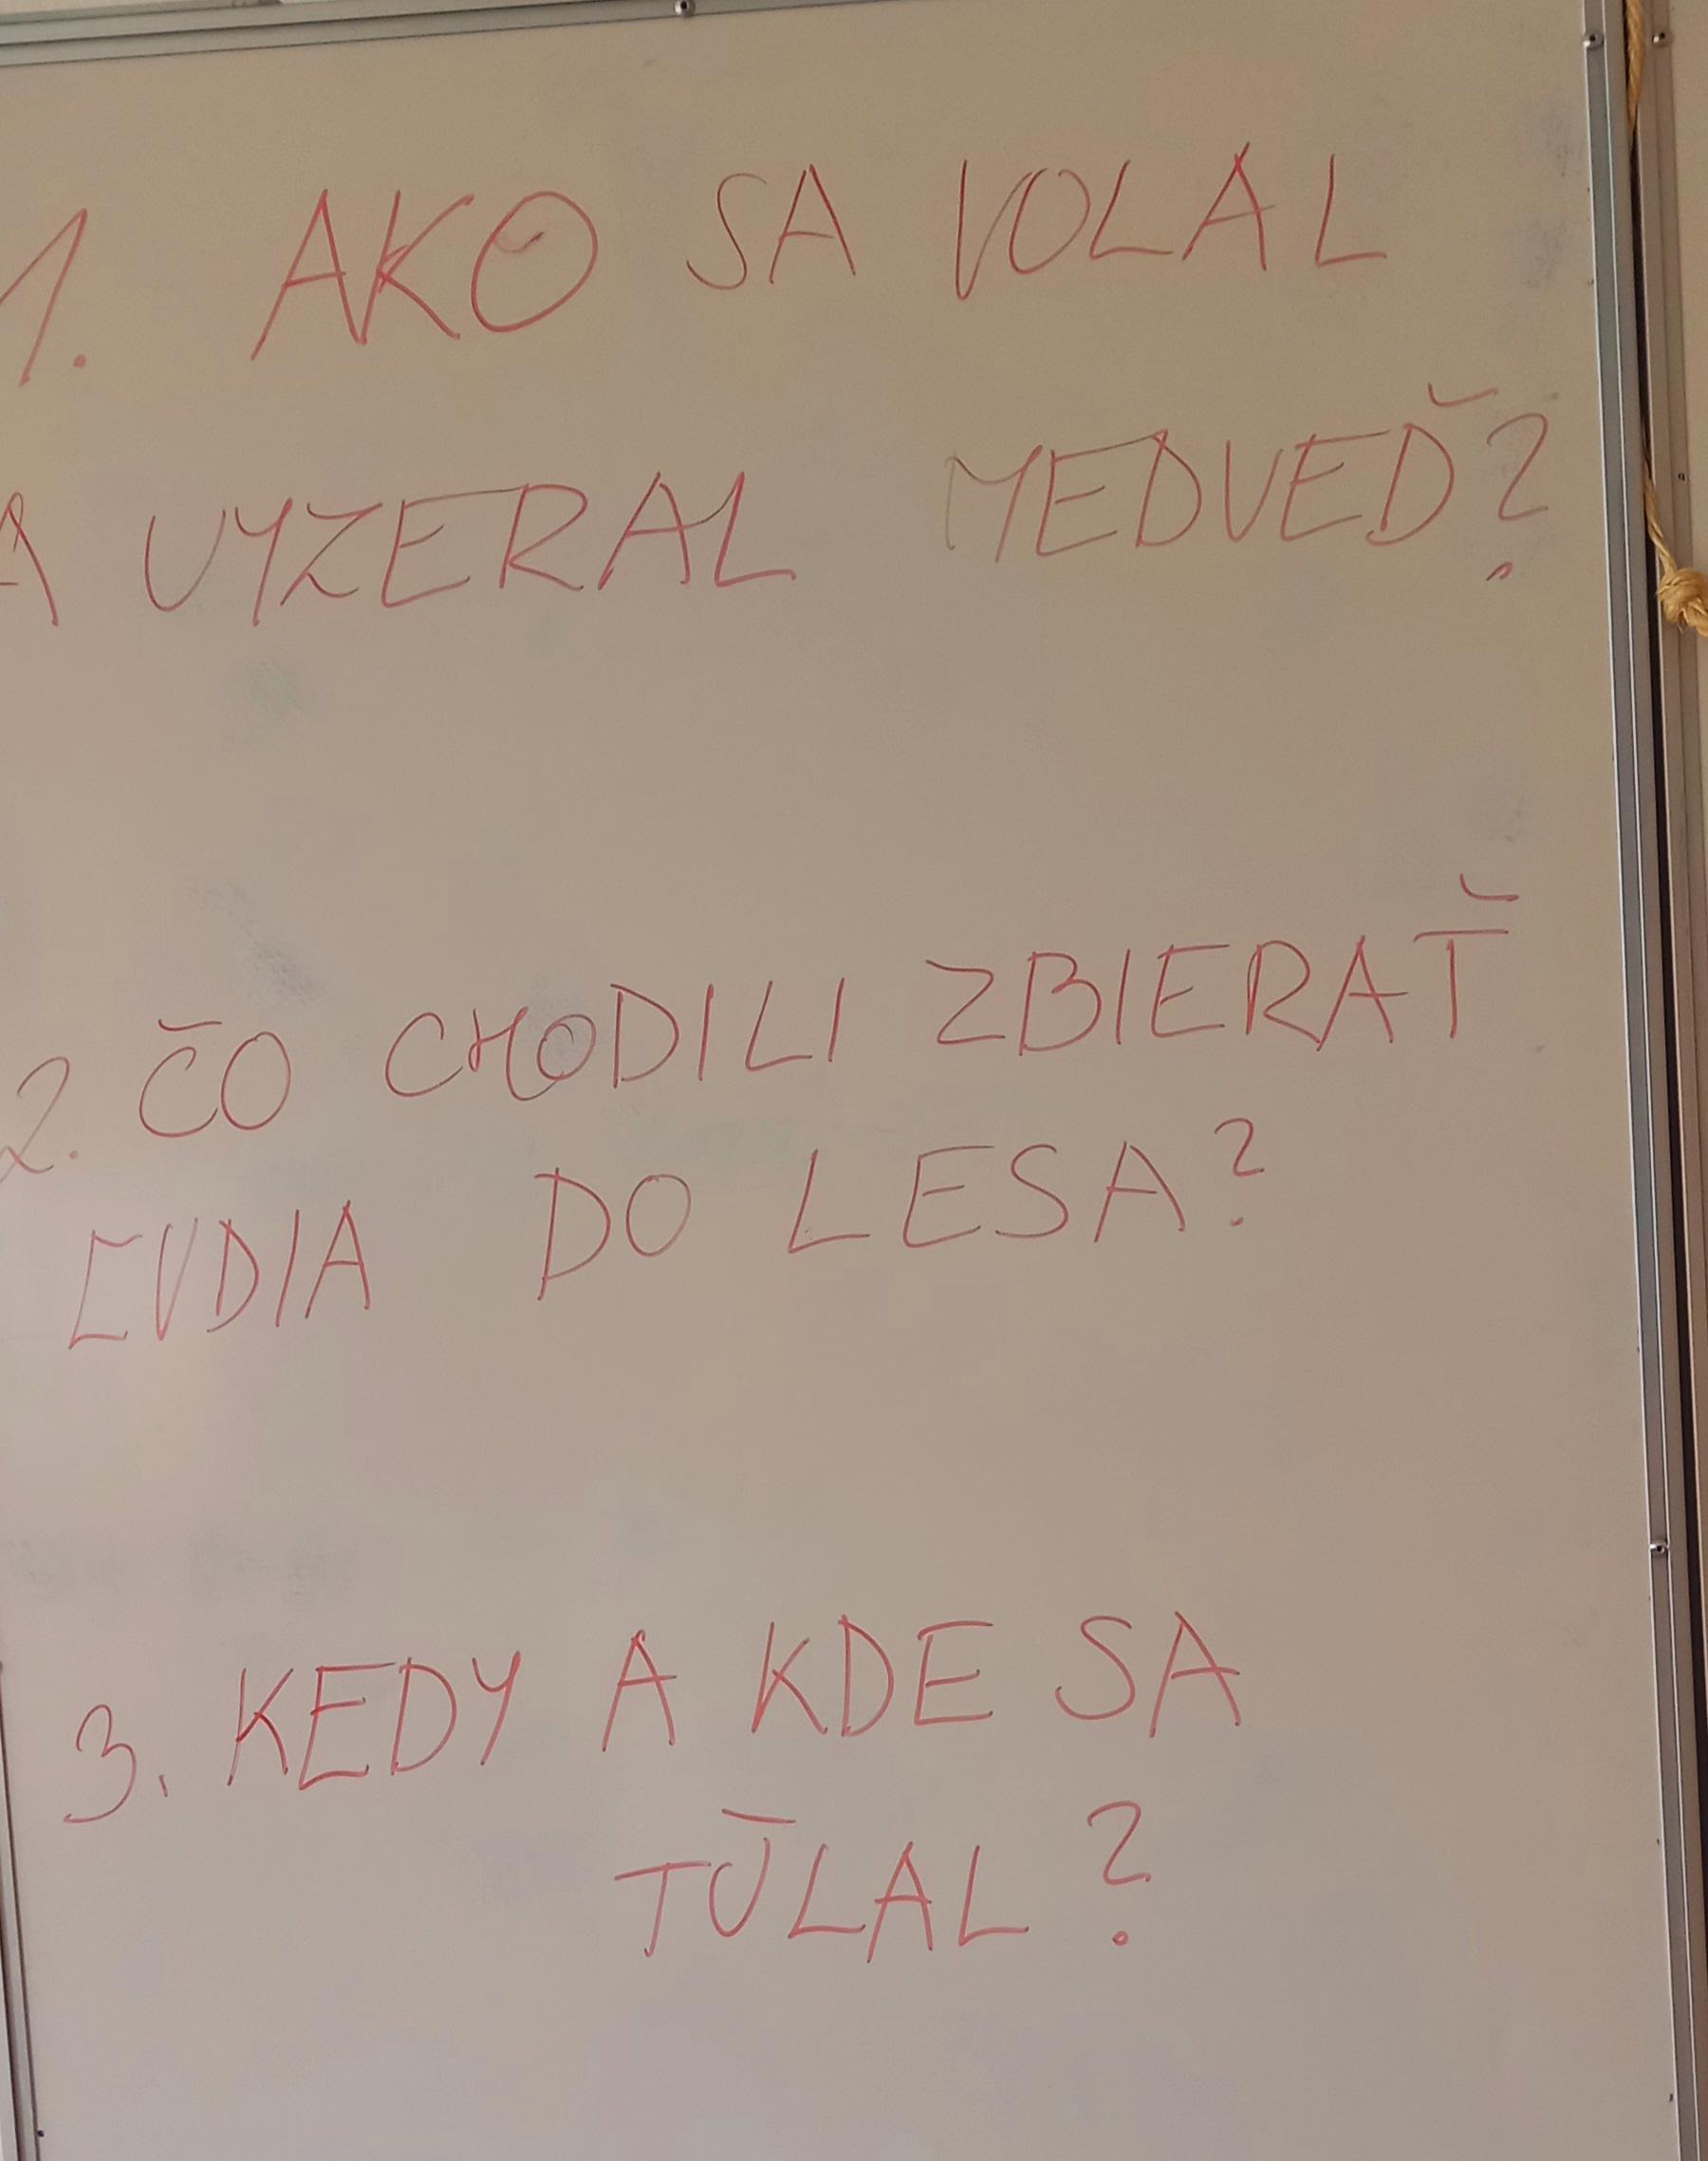 1. AKO SA VOLAL
A VYZERAL MEDVEĎ?
2. ČO CHODILI ZBIERAŤ
ĽUDIA DO LESA?
3. KEDY A KDE SA
TÚLAL?